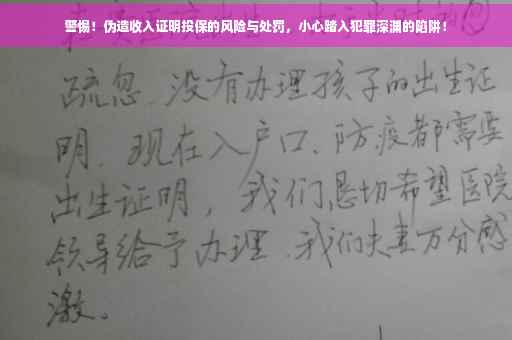 警惕！伪造收入证明投保的风险与处罚，小心踏入犯罪深渊的陷阱！
疏忽、没有办理孩子的出生证
明、现在入户口、防疫都需要
出生证明，我们恳切希望医院
领导给予办理、我们夫妻万分感
激。